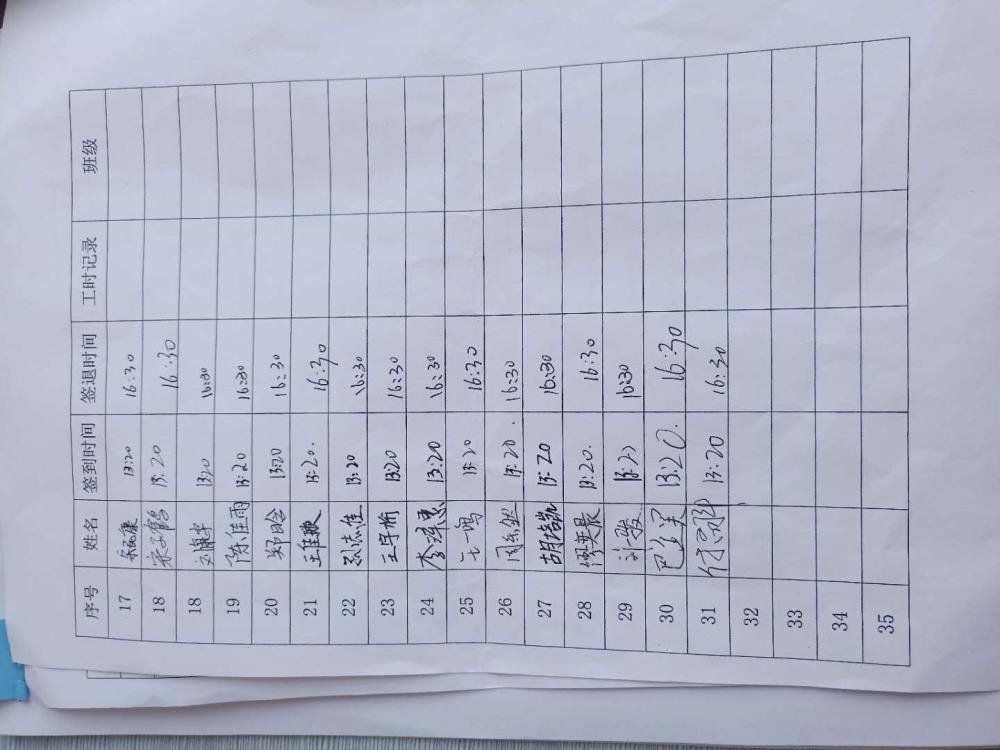 序号 姓名 签到时间 签退时间 工时记录 班级
17 13:20 16:30
18 13:20 16:30
18 13:20 16:30
19 陈佳雨 13:20 16:30
20 13:20 16:30
21 13:20. 16:30
22 13:20 16:30
23 王宇榆 13:20 16:30
24 13:20 16:30
25 王一鸣 13:20 16:30
26 13:20. 16:30
27 胡培凯 13:20 16:30
28 缪奕晨 13:20. 16:30
29 许骏 13:20 16:30
30 13:20. 16:30
31 13:20 16:30
32
33
34
35